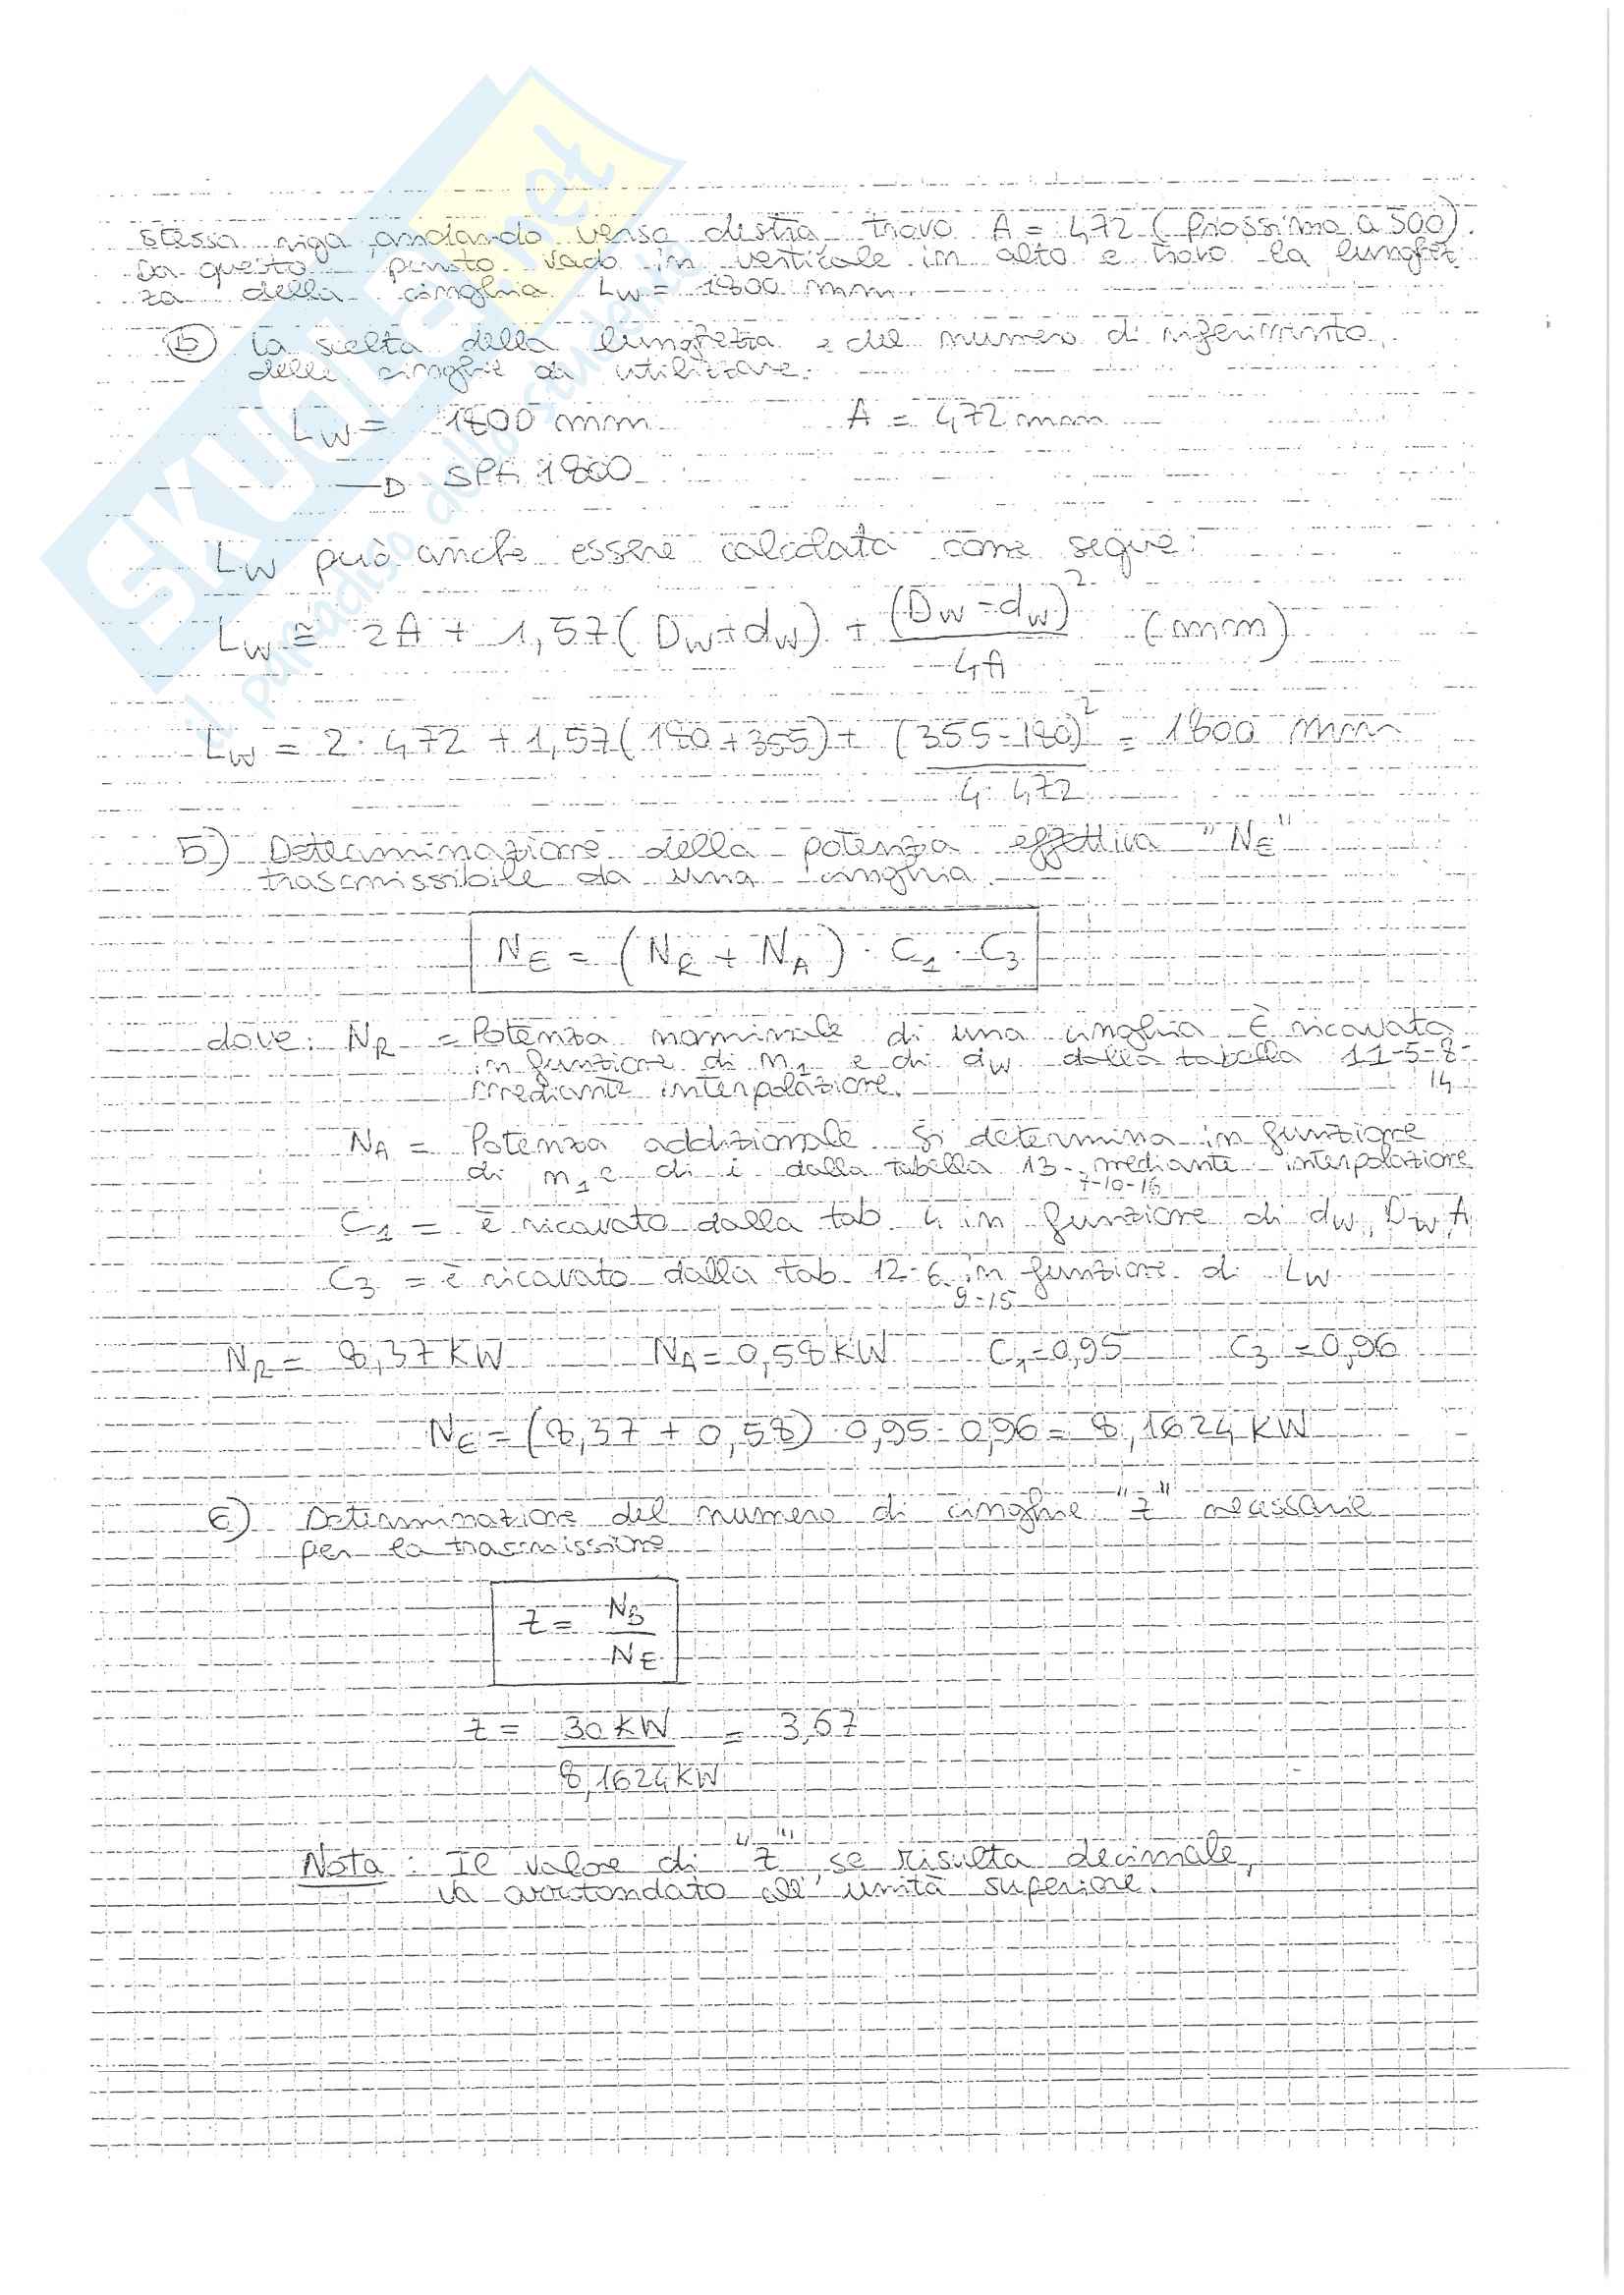 stessa riga andando verso destra trovo A = 472 (prossimo a 500).
Da questo punto vado in verticale in alto e trovo la lunghez
za della cinghia LW = 1800 mm.
b) La scelta della lunghezza e del numero di riferimento
delle cinghie da utilizzare.
LW = 1800 mm A = 472 mm
→ SPA 1800
LW può anche essere calcolata come segue:
LW ≅ 2A + 1,57(DW+dW) + (DW-dW)² / 4A (mm)
LW = 2·472 + 1,57(180+355) + (355-180)² / 4·472 = 1800 mm
5) Determinazione della potenza effettiva "NE"
trasmissibile da una cinghia.
NE = (NR + NA) · C1 · C3
dove: NR = Potenza nominale di una cinghia. È ricavata
in funzione di n1 e di dW dalla tabella 11-5-8-
14
mediante interpolazione.
NA = Potenza addizionale. Si determina in funzione
di n1 e di i dalla tabella 13- mediante interpolazione
7-10-16
C1 = è ricavato dalla tab 4 in funzione di dW, DW, A
C3 = è ricavato dalla tab 12-6 in funzione di LW
9-15
NR = 8,37 KW NA = 0,58 KW C1 = 0,95 C3 = 0,96
NE = (8,37 + 0,58) · 0,95 · 0,96 = 8,1624 KW
6) Determinazione del numero di cinghie "z" necessarie
per la trasmissione
z = NB / NE
z = 30 KW / 8,1624 KW = 3,67
Nota: Il valore di "z", se risulta decimale,
va arrotondato all'unità superiore.
SKUOLA.net
il paradiso dello studente